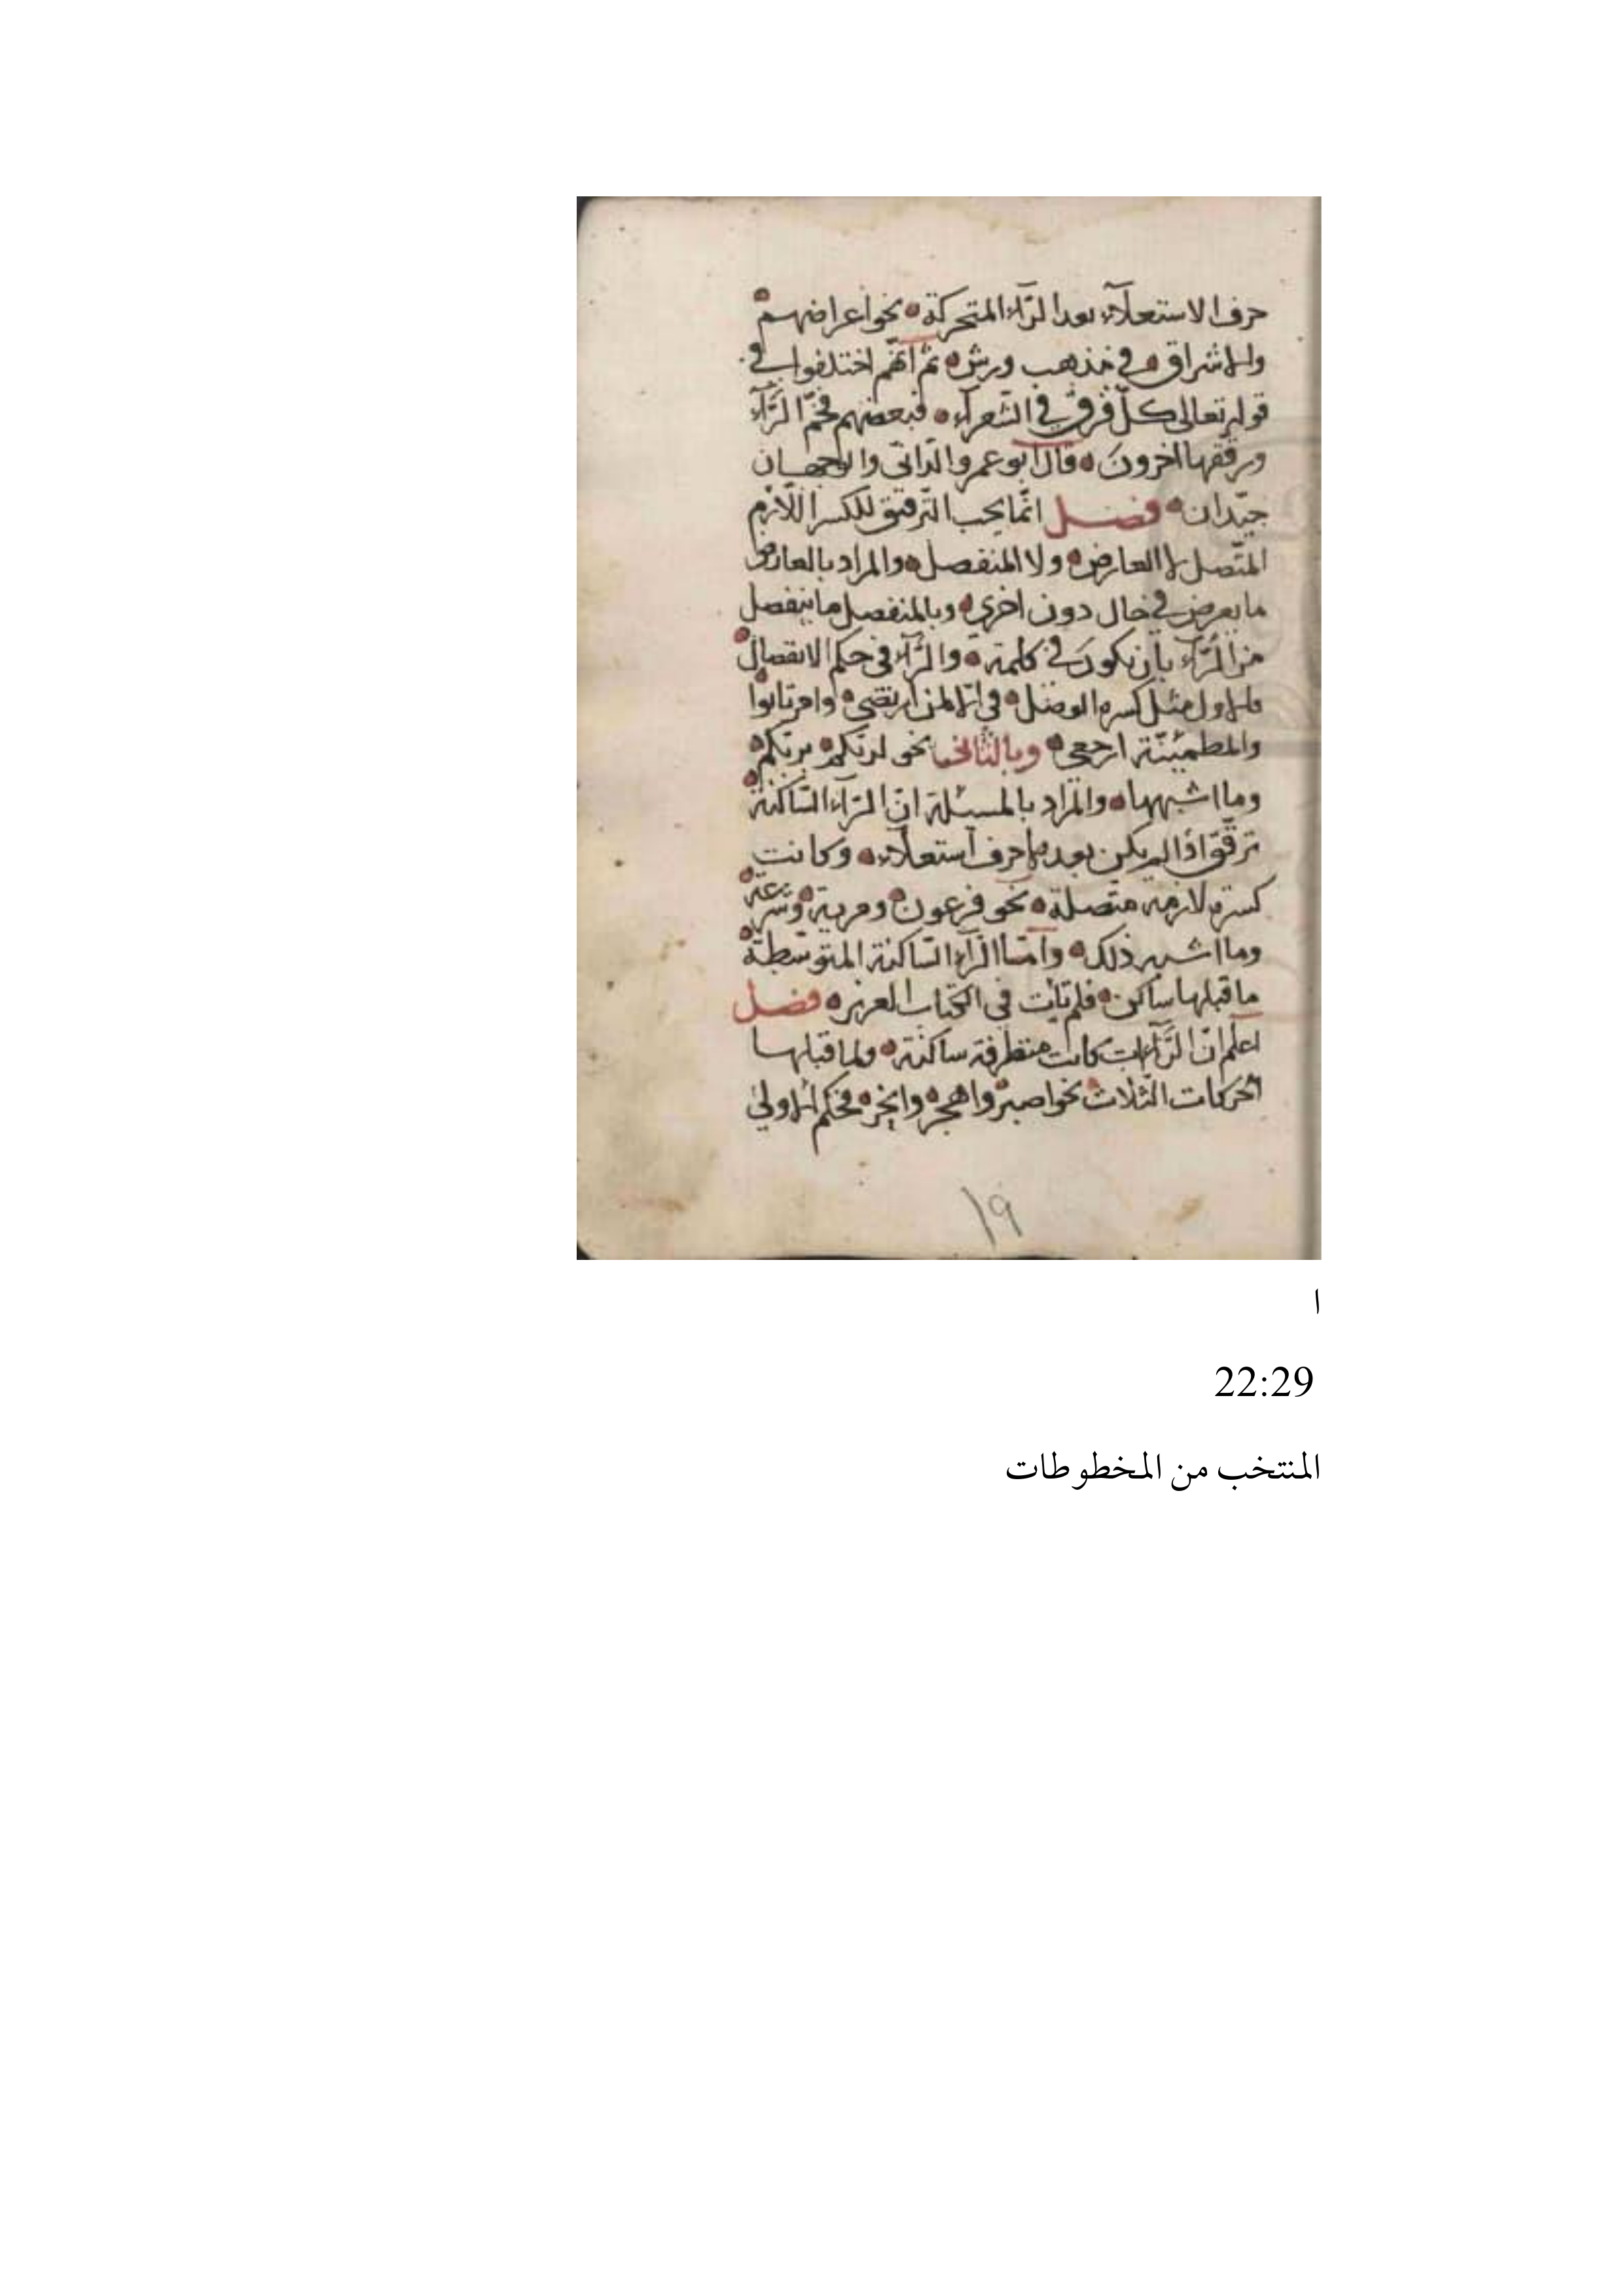 حرف الاستعلآء بعد الرّآء المتحركة نحو اعراضهم
والاشراق في مذهب ورش ثم انّهم اختلفوا في
قوله تعالى كلّ فرق في الشّعرآء فبعضهم فخّم الرّآء
ورققها اخرونَ قال ابو عمرو الدّانيّ والوجهان
جيّدان فصل انّما يجب التّرقيق للكسر اللّازم
المتّصل لا العارض ولا المنفصل والمراد بالعارض
ما يعرض في حال دون اخرى وبالمنفصل ما ينفصل
من الرّآء بان يكونَ في كلمة والرّآء في حكم الانفصال
فالاول مثل كسرة الوصل في الا لمن ارتضى وارتابوا
والمطمئنّة ارجعي وبالثاني نحو لربّكم بربّكم
وما اشبهها والمراد بالمسئلة انّ الرّآء السّاكنة
ترقّق اذا لم يكن بعدها حرف استعلآء وكانت
كسرة لازمة متّصلة نحو فرعون ومرية وشرعة
وما اشبه ذلك وامّا الرّآء السّاكنة المتوسّطة
ما قبلها ساكن فلم تأت في الكتاب العزيز فصل
اعلم انّ الرّآء ان كانت متطرفة ساكنة ولما قبلها
الحركات الثّلاث نحو اصبر واهجر وانحر فحكم الاولى
١٩
ا
22:29
المنتخب من المخطوطات